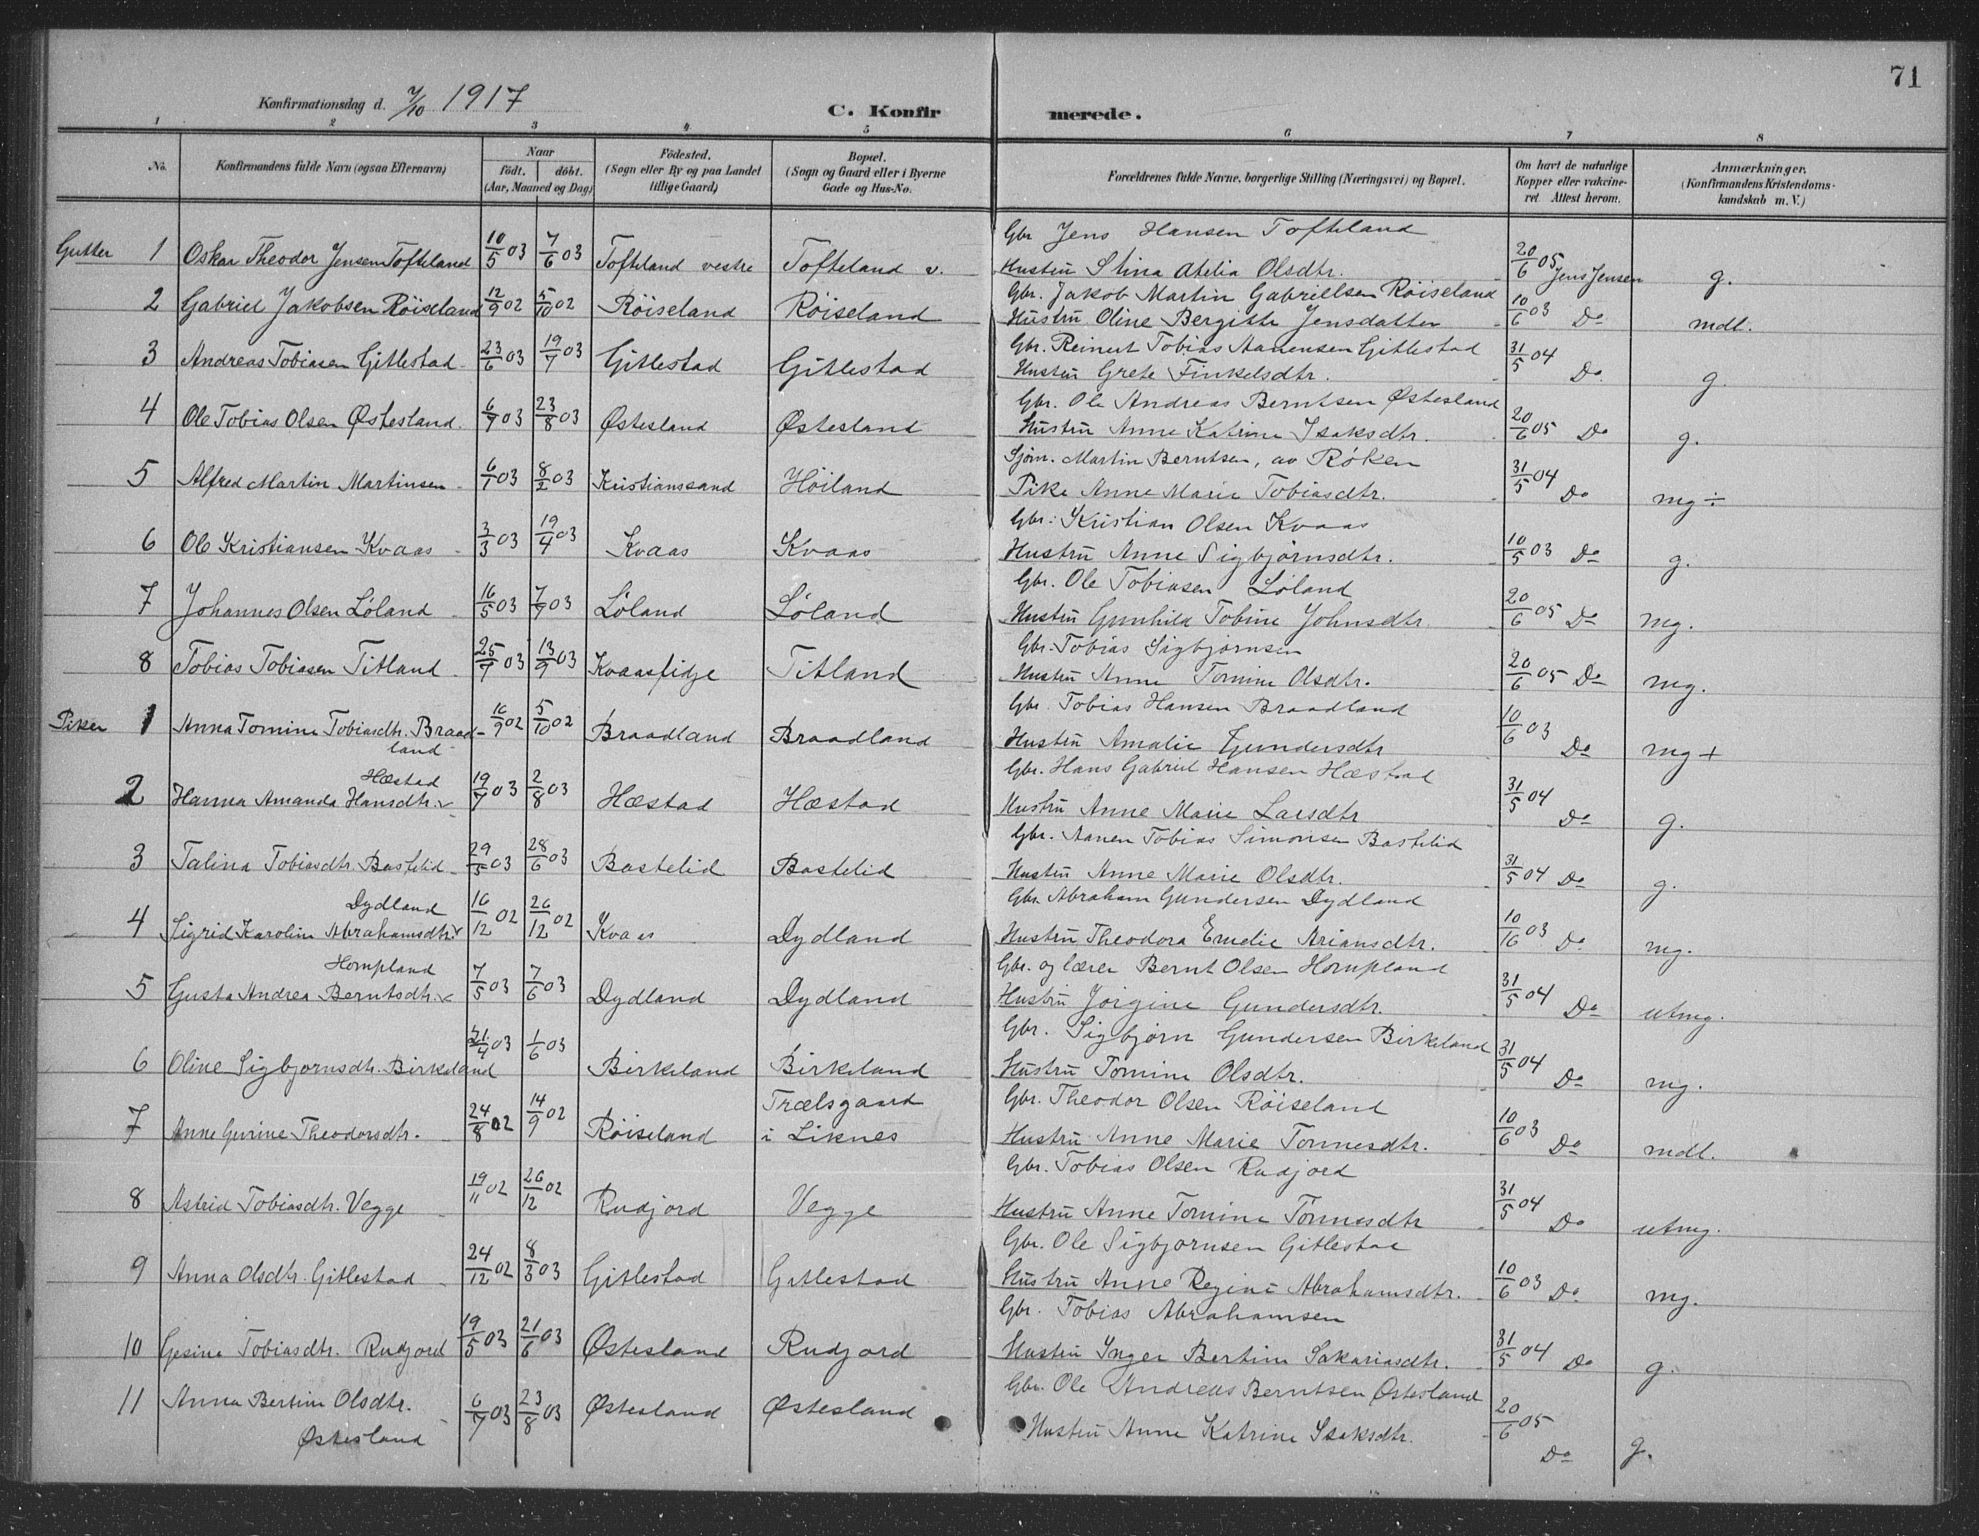 71
Konfirmationsdag d. 7/10 1917
C. Konfirmerede.
1 2 3 4 5 6 7 8
No. Konfirmandens fulde Navn (ogsaa Efternavn) Naar født. døbt. (Aar, Maaned og Dag) Fødested. (Sogn eller By og paa Landet tillige Gaard) Bopæl. (Sogn og Gaard eller i Byerne Gade og Hus-No. Forældrenes fulde Navne, borgerlige Stilling (Næringsvei) og Bopæl. Om havt de naturlige Kopper eller vakcineret. Attest herom. Anmærkninger. (Konfirmandens Kristendomskundskab m. V.)
Gutter 1 Oskar Theodor Jensen Tofteland 10/5 03 7/6 03 Tofteland vestre Tofteland v. Gbr Jens Hansen Tofteland
Hustru Stina Atelia Olsdtr. 20/6 05 Jens Jensen g.
2 Gabriel Jakobsen Røiseland 12/9 02 5/10 02 Røiseland Røiseland Gbr. Jakob Martin Gabrielsen Røiseland
Hustru Oline Bergitte Jensdatter 10/6 03 Do mdl.
3 Andreas Tobiasen Gitlestad 23/6 03 19/7 03 Gitlestad Gitlestad Gbr. Reinert Tobias Aanensen Gitlestad
Hustru Grete Finkelsdtr. 31/5 04 Do g.
4 Ole Tobias Olsen Østesland. 6/7 03 23/8 03 Østesland Østesland Gbr. Ole Andreas Berntsen Østesland
Hustru Anne Katrine Isaksdtr. 20/6 05 Do g.
5 Alfred Martin Martinsen 6/1 03 8/2 03 Kristianssand Høiland Sjøm. Martin Berntsen, av Røken
Pike Anne Marie Tobiasdtr. 31/5 04 Do mg ÷
6 Ole Kristiansen Kvaas 3/3 03 19/4 03 Kvaas Kvaas Gbr. Kristian Olsen Kvaas
Hustru Anne Sigbjørnsdtr. 10/5 03 Do g.
7 Johannes Olsen Løland 16/5 03 7/9 03 Løland Løland Gbr. Ole Tobiasen Løland
Hustru Gunhild Tobine Johnsdtr. 20/6 05 Do mg.
8 Tobias Tobiasen Titland 25/7 03 13/9 03 Kvaasfidje Titland Gbr. Tobias Sigbjørnsen
Hustru Anne Tomine Olsdtr. 20/6 05 Do mg.
Piker 1 Anna Tomine Tobiasdtr. Braadland 16/9 02 5/10 02 Braadland Braadland Gbr. Tobias Hansen Braadland
Hustru Amalie Gundersdtr 10/6 03 Do mg +
2 Hanna Amanda Hansdtr. Hæstad 19/7 03 2/8 03 Hæstad Hæstad Gbr. Hans Gabriel Hansen Hæstad
Hustru Anne Marie Larsdtr 31/5 04 Do g.
3 Talina Tobiasdtr. Bastelid 29/5 03 28/6 03 Bastelid Bastelid Gbr. Aanen Tobias Simonsen Bastelid
Hustru Anne Marie Olsdtr. 31/5 04 Do g.
4 Sigrid Karolin Abrahamsdtr. Dydland 16/12 02 26/12 02 Kvaas Dydland Gbr. Abraham Gundersen Dydland
Hustru Theodora Emelie Ariansdtr. 10/16 03 Do mg.
5 Gusta Andrea Berntsdtr. Hompland 7/5 03 7/6 03 Dydland Dydland Gbr. og lærer Bernt Olsen Hompland
Hustru Jørgine Gundersdtr. 31/5 04 Do utmg.
6 Oline Sigbjørnsdtr. Birkeland 21/4 03 1/6 03 Birkeland Birkeland Gbr. Sigbjørn Gundersen Birkeland
Hustru Tomine Olsdtr. 31/5 04 Do mg.
7 Anne Gurine Theodorsdtr. 24/8 02 14/9 02 Røiseland Trælsgaard i Liknes Gbr. Theodor Olsen Røiseland
Hustru Anne Marie Tonnesdtr. 10/6 03 Do mdl.
8 Astrid Tobiasdtr. Vegge 19/11 02 26/12 02 Rudjord Vegge Gbr. Tobias Olsen Rudjord
Hustru Anne Tomine Tonnesdtr 31/5 04 Do utmg.
9 Anna Olsdtr. Gitlestad 24/12 02 8/3 03 Gitlestad Gitlestad Gbr. Ole Sigbjørnsen Gitlestad
Hustru Anne Regine Abrahamsdtr. 10/6 03 Do mg.
10 Gesine Tobiasdtr. Rudjord 19/5 03 21/6 03 Østesland Rudjord Gbr. Tobias Abrahamsen
Hustru Inger Bertine Sakariasdtr. 31/5 04 Do g.
11 Anna Bertine Olsdtr. Østesland 6/7 03 23/8 03 Østesland Østesland Gbr. Ole Andreas Berntsen Østesland
Hustru Anne Katrine Isaksdtr. 20/6 05 Do g.